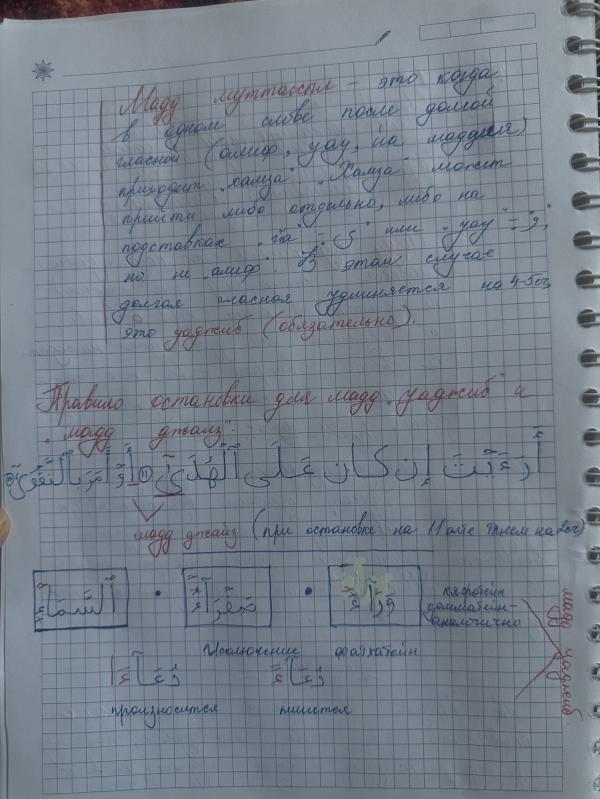 Мадд муттасыл – это когда
в одном слове после долгой
гласной (алиф, уау, йа маддия)
приходит „хамза“. „Хамза“ может
прийти либо отдельно, либо на
подставках „йа“ = ى или „уау“ = و,
но не алиф. В этом случае
долгая гласная удлиняется на 4-5сч,
это уаджиб (обязательно).
Правило остановки для мадд „уаджиб“ и
„мадд джаиз“:
أَرَءَيْتَ إِن كَانَ عَلَى ٱلْهُدَىٰٓ ⑪ أَوْ أَمَرَ بِٱلتَّقْوَىٰٓ ⑫
мадд джаиз (при остановке на 11 аяте тянем на 2сч)
ٱلسَّمَآءِ • صَفْرَآءُ •
кясратейн
дамматейн-
аналогично
мадд уаджиб
Исключение фатхатейн
دُعَآءَا دُعَآءً
произносится пишется